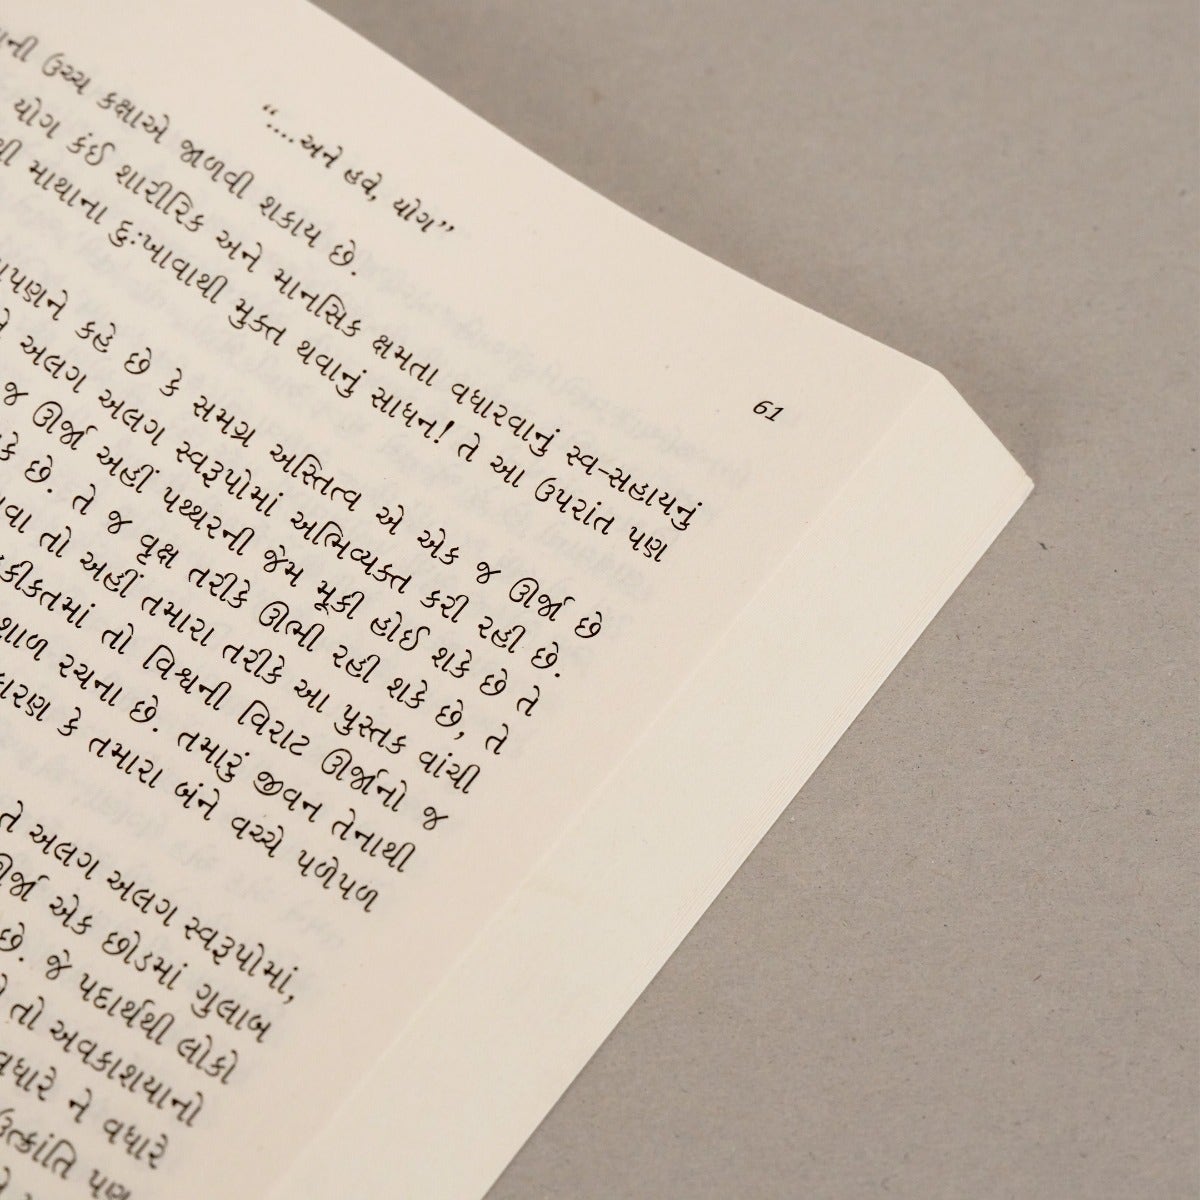 “....અને હવે, યોગ”
61
ઉચ્ચ કક્ષાએ જાળવી શકાય છે.
યોગ કંઈ શારીરિક અને માનસિક ક્ષમતા વધારવાનું સ્વ-સહાયનું
માથાના દુઃખાવાથી મુક્ત થવાનું સાધન! તે આ ઉપરાંત પણ
કહે છે કે સમગ્ર અસ્તિત્વ એ એક જ ઊર્જા છે
અલગ અલગ સ્વરૂપોમાં અભિવ્યક્ત કરી રહી છે.
જ ઊર્જા અહીં પથ્થરની જેમ મૂકી હોઈ શકે છે તે
છે. તે જ વૃક્ષ તરીકે ઊભી રહી શકે છે, તે
તો અહીં તમારા તરીકે આ પુસ્તક વાંચી
તો વિશ્વની વિરાટ ઊર્જાનો જ
રચના છે. તમારું જીવન તેનાથી
કે તમારા બંને વચ્ચે પળેપળ
તે અલગ અલગ સ્વરૂપોમાં,
એક છોડમાં ગુલાબ
છે. જે પદાર્થથી લોકો
તો અવકાશયાનો
ને વધારે
પણ